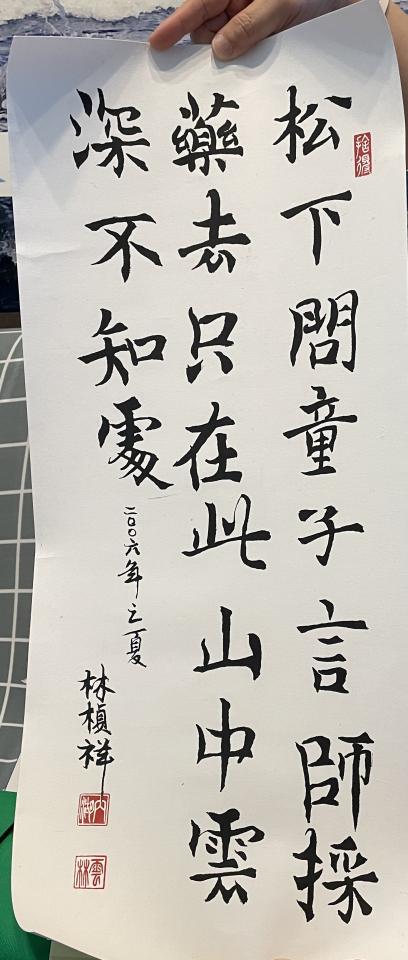 松下問童子言師採
藥去只在此山中雲
深不知處
二〇〇六年之夏
林楨祥
捨得
雲林